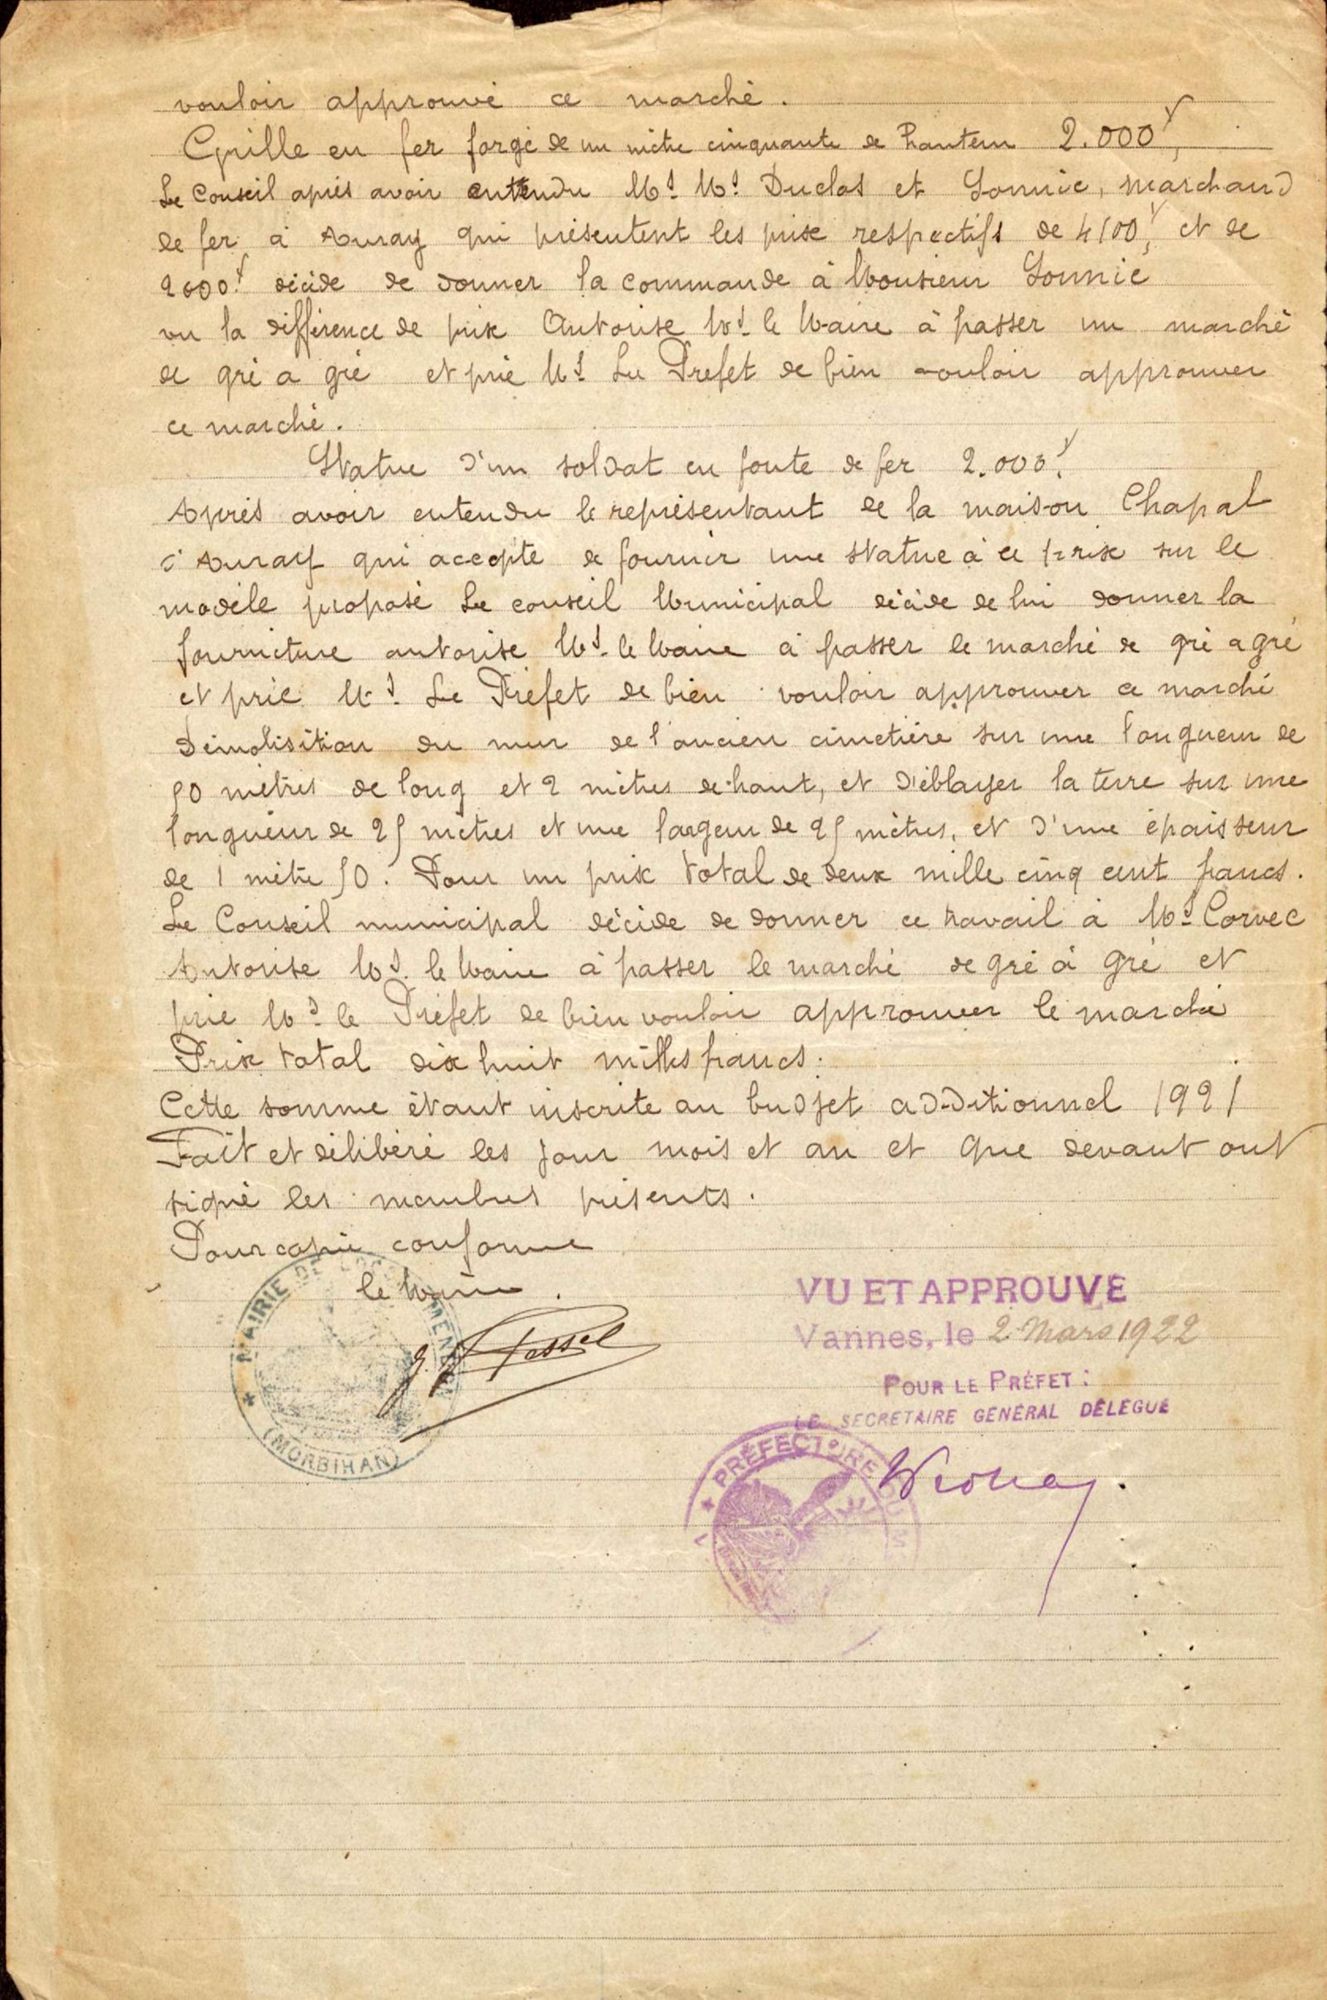 vouloir approuvé ce marché.
Grille en fer forgé de un mètre cinquante de hauteur 2.000f,
Le Conseil après avoir entendu Mrs Mrs Duclos et Lonnic, marchand
de fer à Auray qui présentent les prix respectifs de 4100f, et de
2000f décide de donner la commande à Monsieur Lonnic
vu la différence de prix Autorise Mr le Maire à passer un marché
de gré a gré et prie Mr Le Préfet de bien vouloir approuver
ce marché.
Statue d'un soldat en fonte de fer 2.000f
Après avoir entendu le représentant de la maison Chapal
d'Auray qui accepte de fournir une statue à ce prix sur le
modèle proposé Le conseil Municipal décide de lui donner la
fourniture autorise Mr le Maire à passer le marché de gré a gré
et prie Mr Le Préfet de bien vouloir approuver ce marché
Démolisition du mur de l'ancien cimetière sur une longueur de
50 mètres de long et 2 mètres de haut, et d'éblayer la terre sur une
longueur de 25 mètres et une largeur de 25 mètres, et d'une épaisseur
de 1 mètre 50. Pour un prix total de deux mille cinq cent francs.
Le Conseil municipal décide de donner ce travail à Mr Corvec
Autorise Mr le Maire à passer le marché de gré à gré et
prie Mr le Préfet de bien vouloir approuver le marché
Prix total dix huit milles francs.
Cette somme étant inscrite au budjet additionnel 1921
Fait et délibéré les jour mois et an et que devant ont
signé les membres présents.
Pour copie conforme
le Maire
MAIRIE DE
(MORBIHAN)
VU ET APPROUVÉ
Vannes, le 2 Mars 1922
POUR LE PRÉFET :
LE SECRÉTAIRE GÉNÉRAL DÉLÉGUÉ
PRÉFECTURE DU M